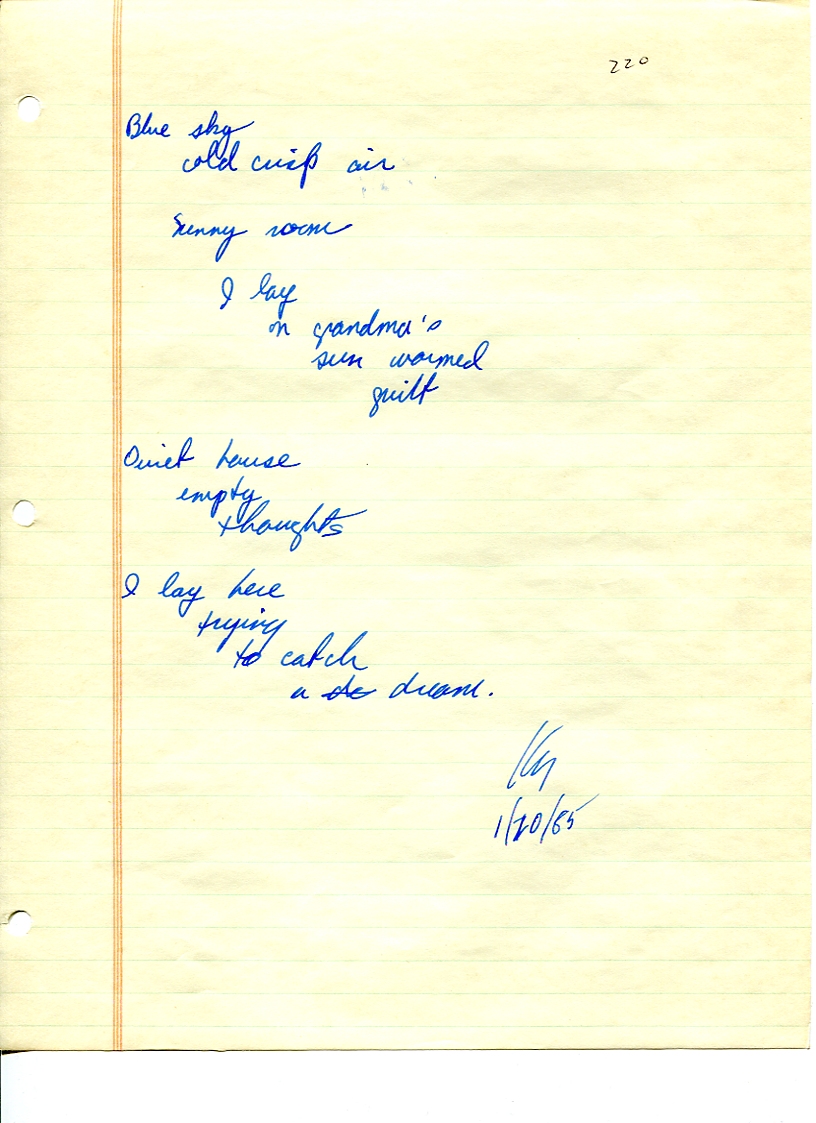 220
Blue sky
cold crisp air
Sunny room
I lay
on grandma's
sun warmed
quilt
Quiet house
empty
thoughts
I lay here
trying
to catch
a dream.
1/20/85